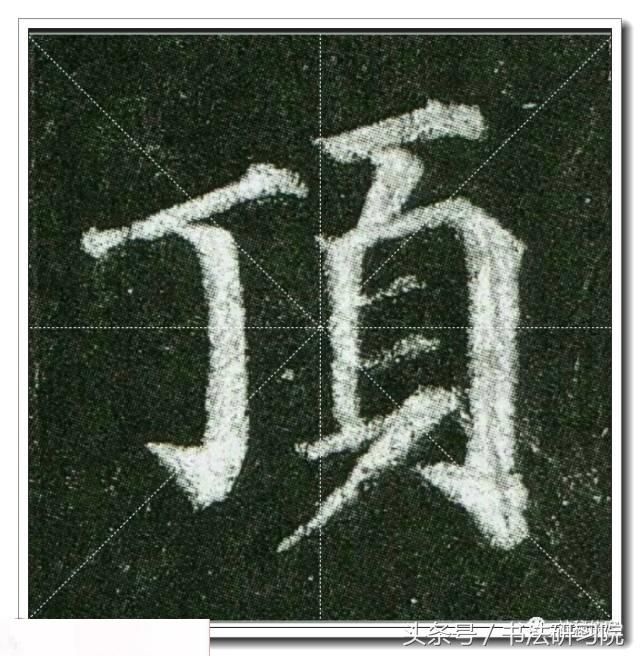 頂
头条号 / 书法研习院